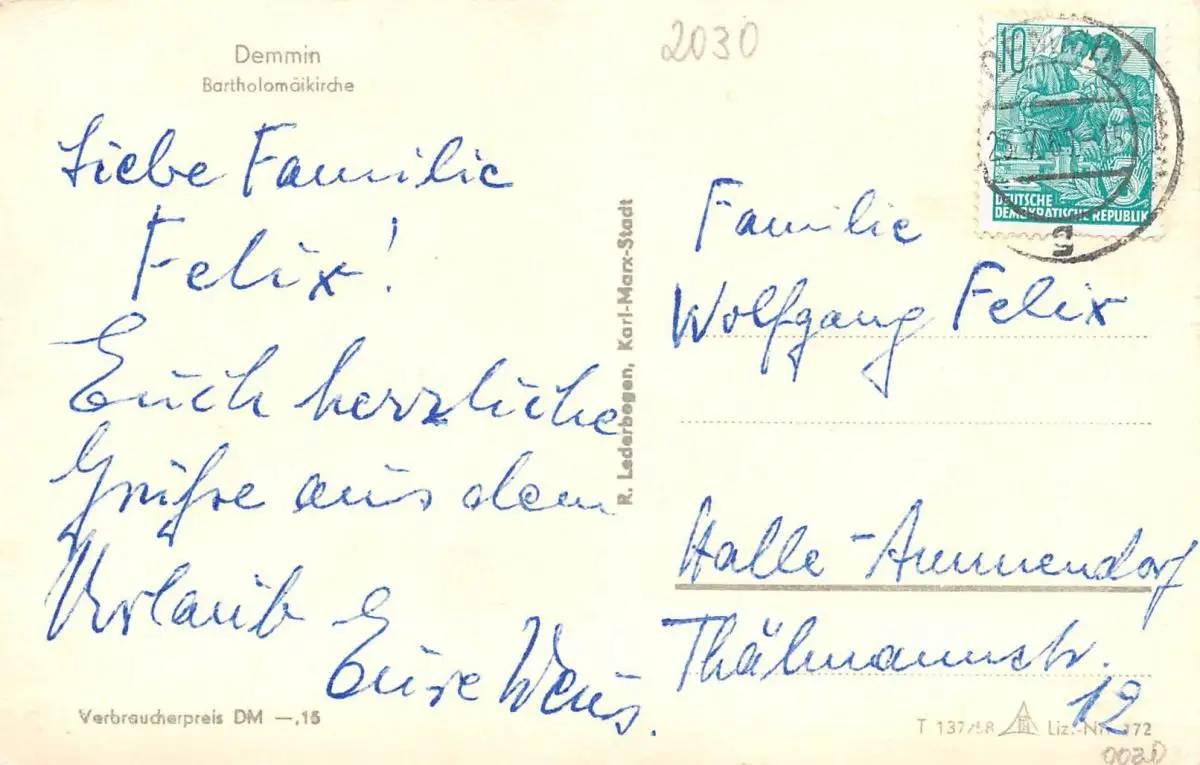 Demmin
Bartholomäikirche
Liebe Familie
Felix!
Euch herzliche
Grüße aus dem
Urlaub
Eure
Verbraucherpreis DM —,15
R. Lederbogen, Karl-Marx-Stadt
2030
10
DEUTSCHE
DEMOKRATISCHE REPUBLIK
5
g
Familie
Wolfgang Felix
Halle-Ammendorf
Thälmannstr.
12
T 137/58 Liz.-Nr. 172
0030